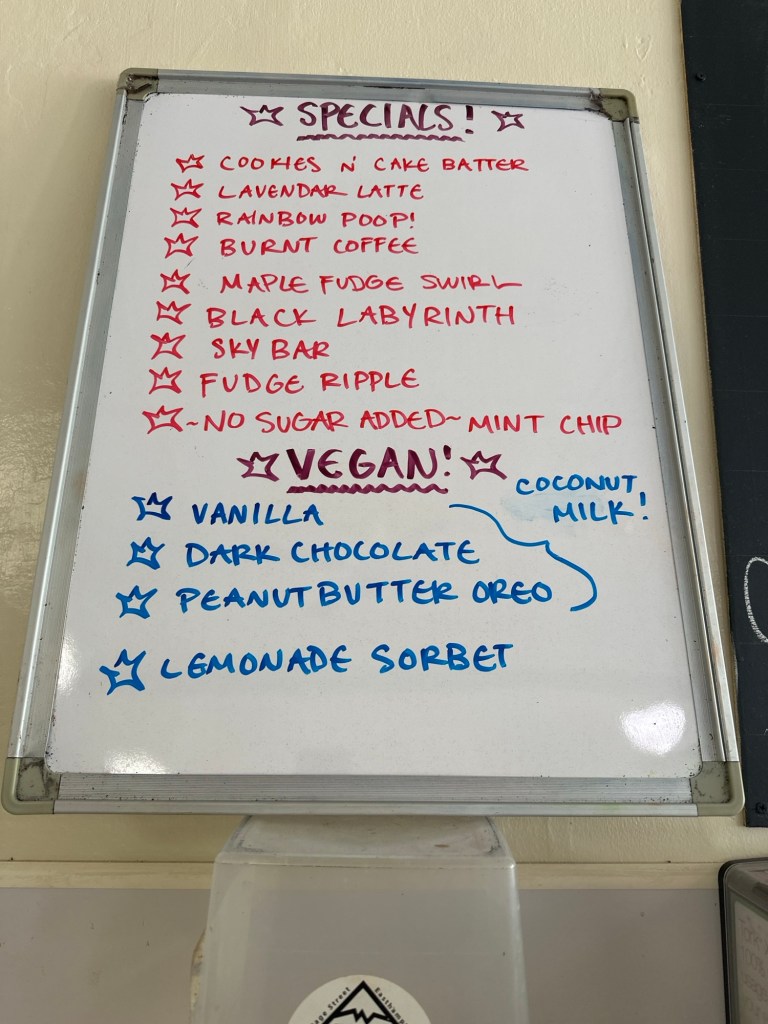 SPECIALS!
COOKIES N' CAKE BATTER
LAVENDAR LATTE
RAINBOW POOP!
BURNT COFFEE
MAPLE FUDGE SWIRL
BLACK LABYRINTH
SKY BAR
FUDGE RIPPLE
~NO SUGAR ADDED~ MINT CHIP
VEGAN!
COCONUT
MILK!
VANILLA
DARK CHOCOLATE
PEANUT BUTTER OREO
LEMONADE SORBET